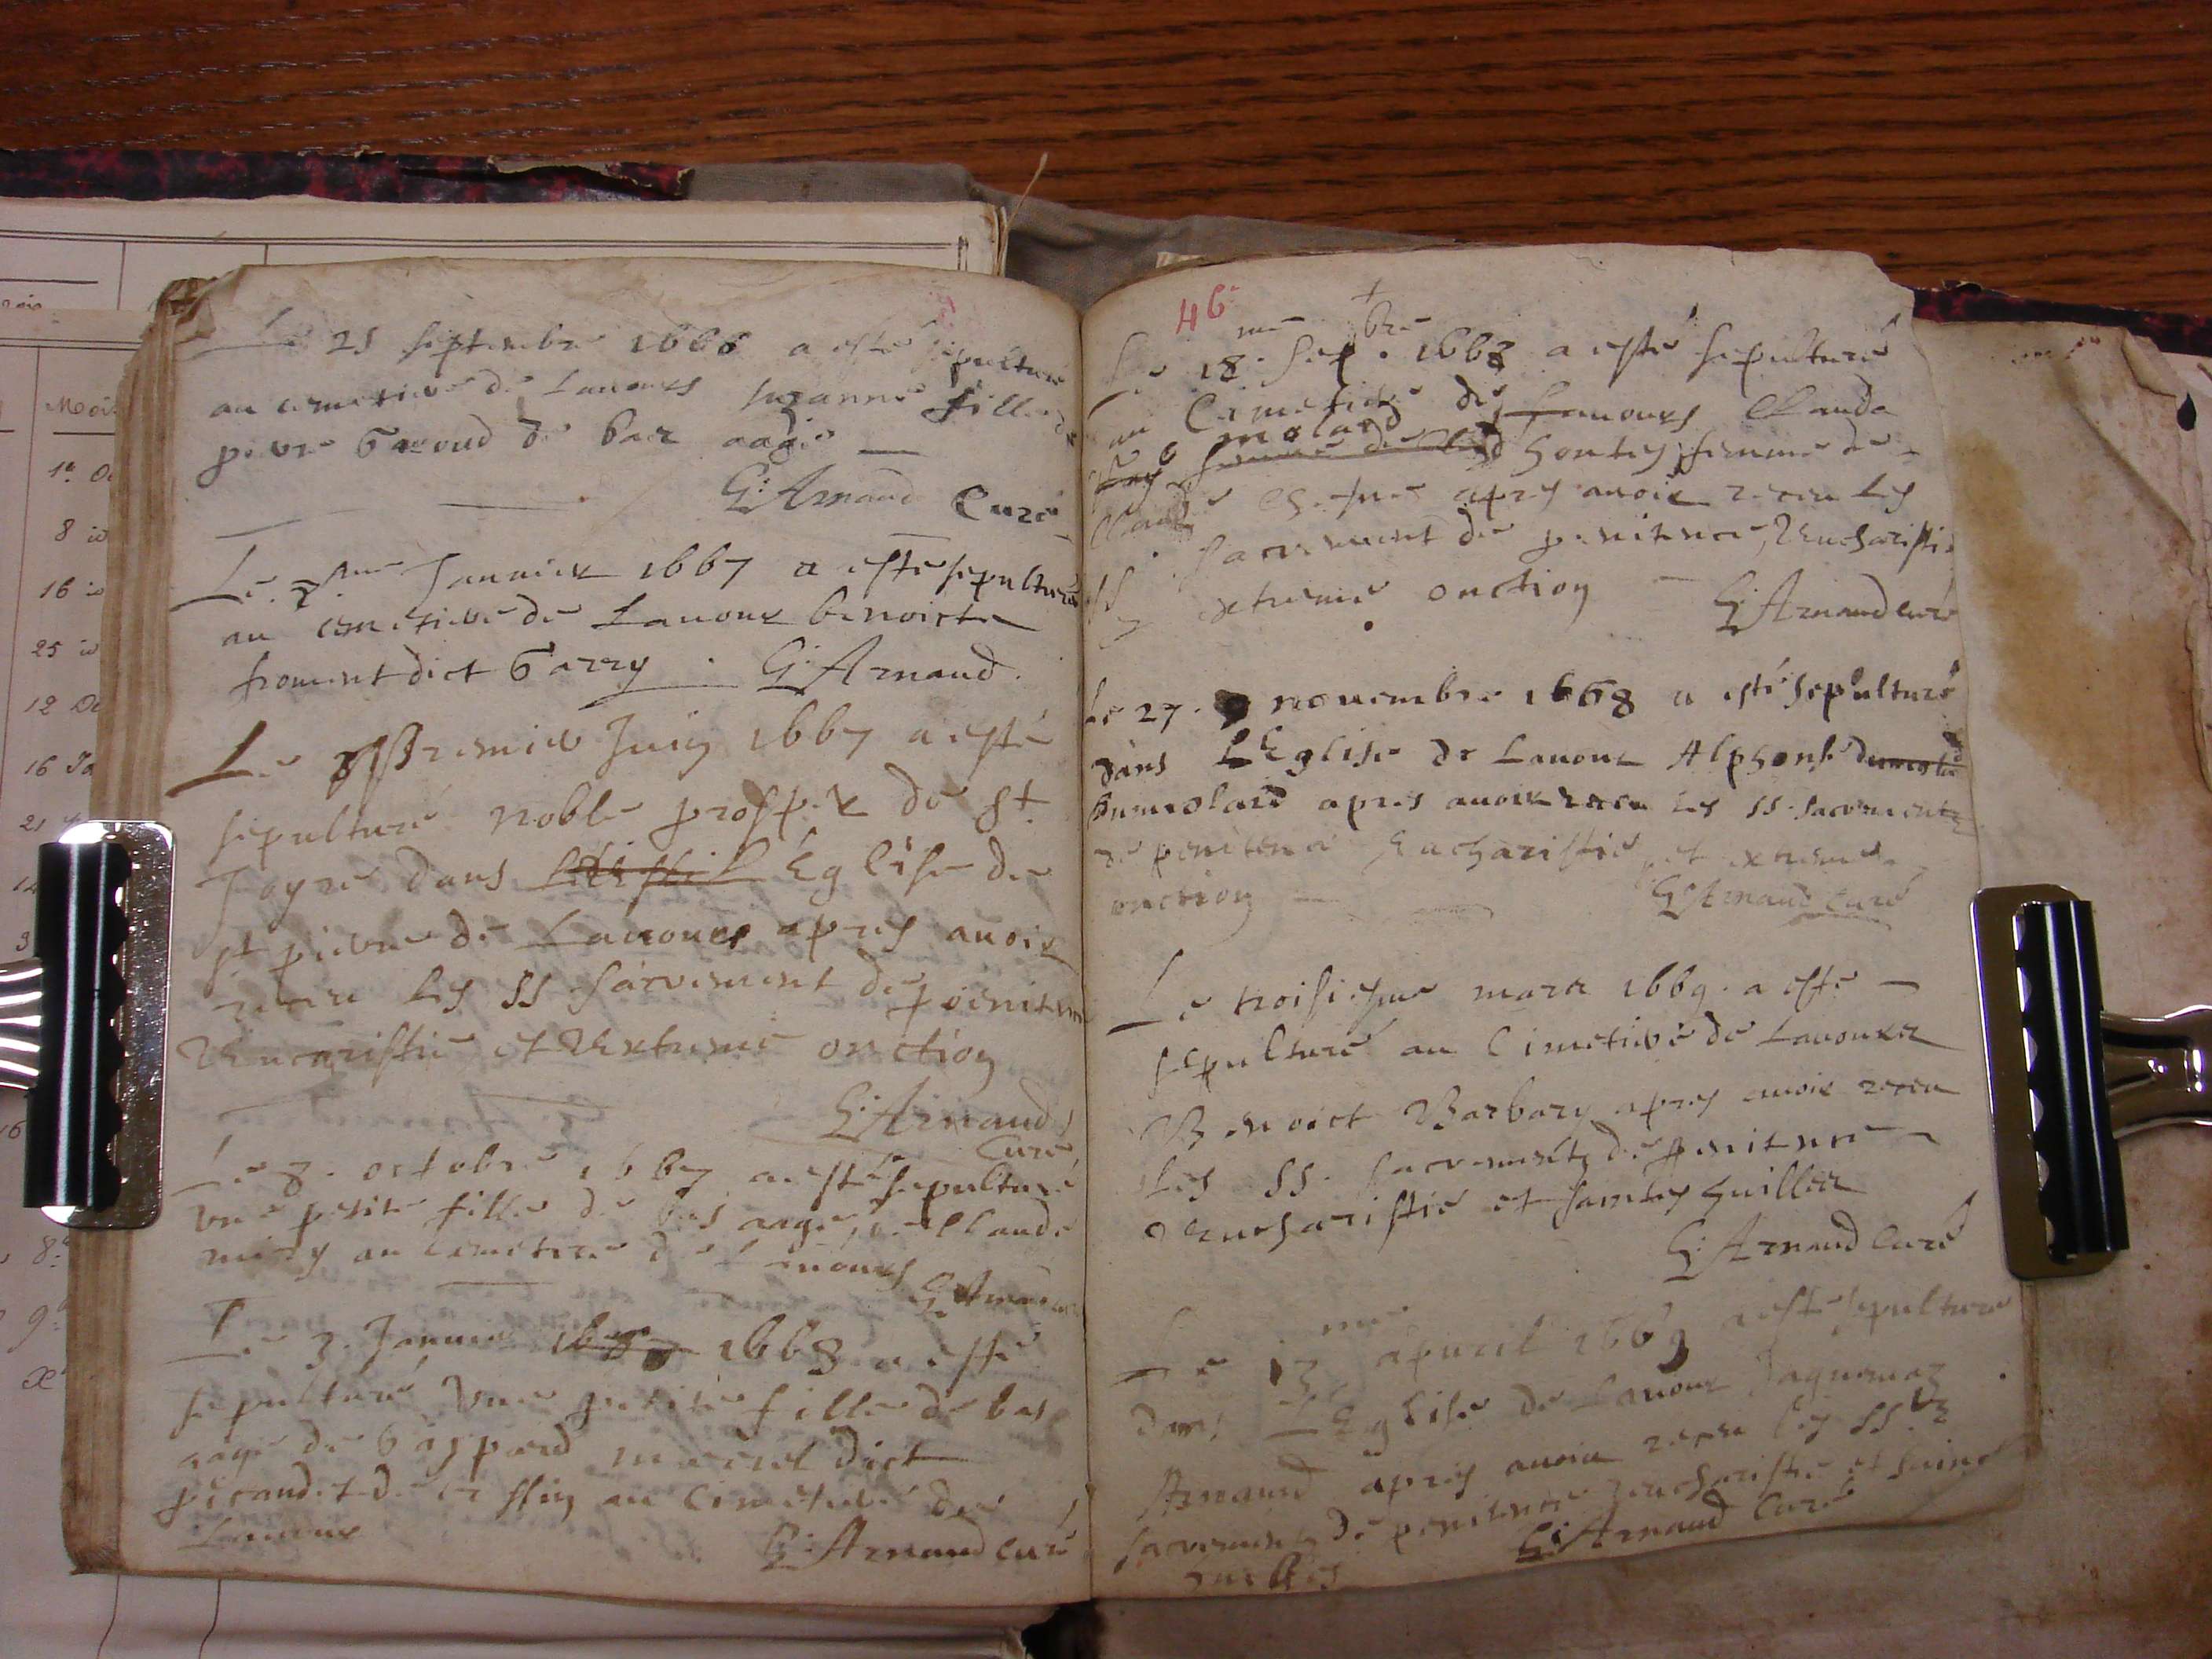 Le 21 septembre 1666 a esté sepulturé
au cemetiere de Lauours suzanne fille de
pierre Garoud de bas aage
G: Arnaud Curé
Le 2sme Januier 1667 a esté sepulturé
au cemetiere de Lauour benoicte
froment dict Garry. G: Arnaud.
Le premier Juin 1667 a esté
sepulturé noble prosper de st
Joyre dans Eglise de
st pierre de Lauours apres auoir
receu les SS sacrement de penitence
Eucaristie et Extreme onction
G: Arnaud
Curé
Le 8. octobre 1667 a esté sepulturé
vne petite fille de bas aage, de Claude
au cemetiere de Lauours
G Arnaud
Le 3. Januier 1668 a esté
sepulturé vne petite fille de bas
aage de Gaspard dict
au Cimetiere de
Lauour G: Arnaud curé
46
Le 18me Sepbre. 1668 a esté sepulturé
au Cimetiere de Lauours Clauda
molard
femme de
Claude apres auoir receu les
SS. sacrement de penitence, Eucharistie
extreme onction G: Arnaud curé
Le 27. nouembre 1668 a esté sepulturé
dans L'Eglise de Lauour Alphonse dumolard
Dumolard apres auoir receu les SS. sacrementz
de penitence Eucharistie et extreme
onction G: Arnaud Curé
Le troisiesme mars 1669. a esté
sepulturé au Cimetiere de Lauours
Benoict Barbary apres auoir receu
les SS. sacrementz de penitence
Eucharistie et sainctes huilles
G: Arnaud Curé
Le 13me apuril 1669 a esté sepulturé
dans L'Eglise de Lauour Jaquemaz
Arnaud apres auoir receu les SS.tz
sacrementz de penitence Eucharistie et sainc
huilles G: Arnaud Curé
Mois
8
16
25
12
16
21